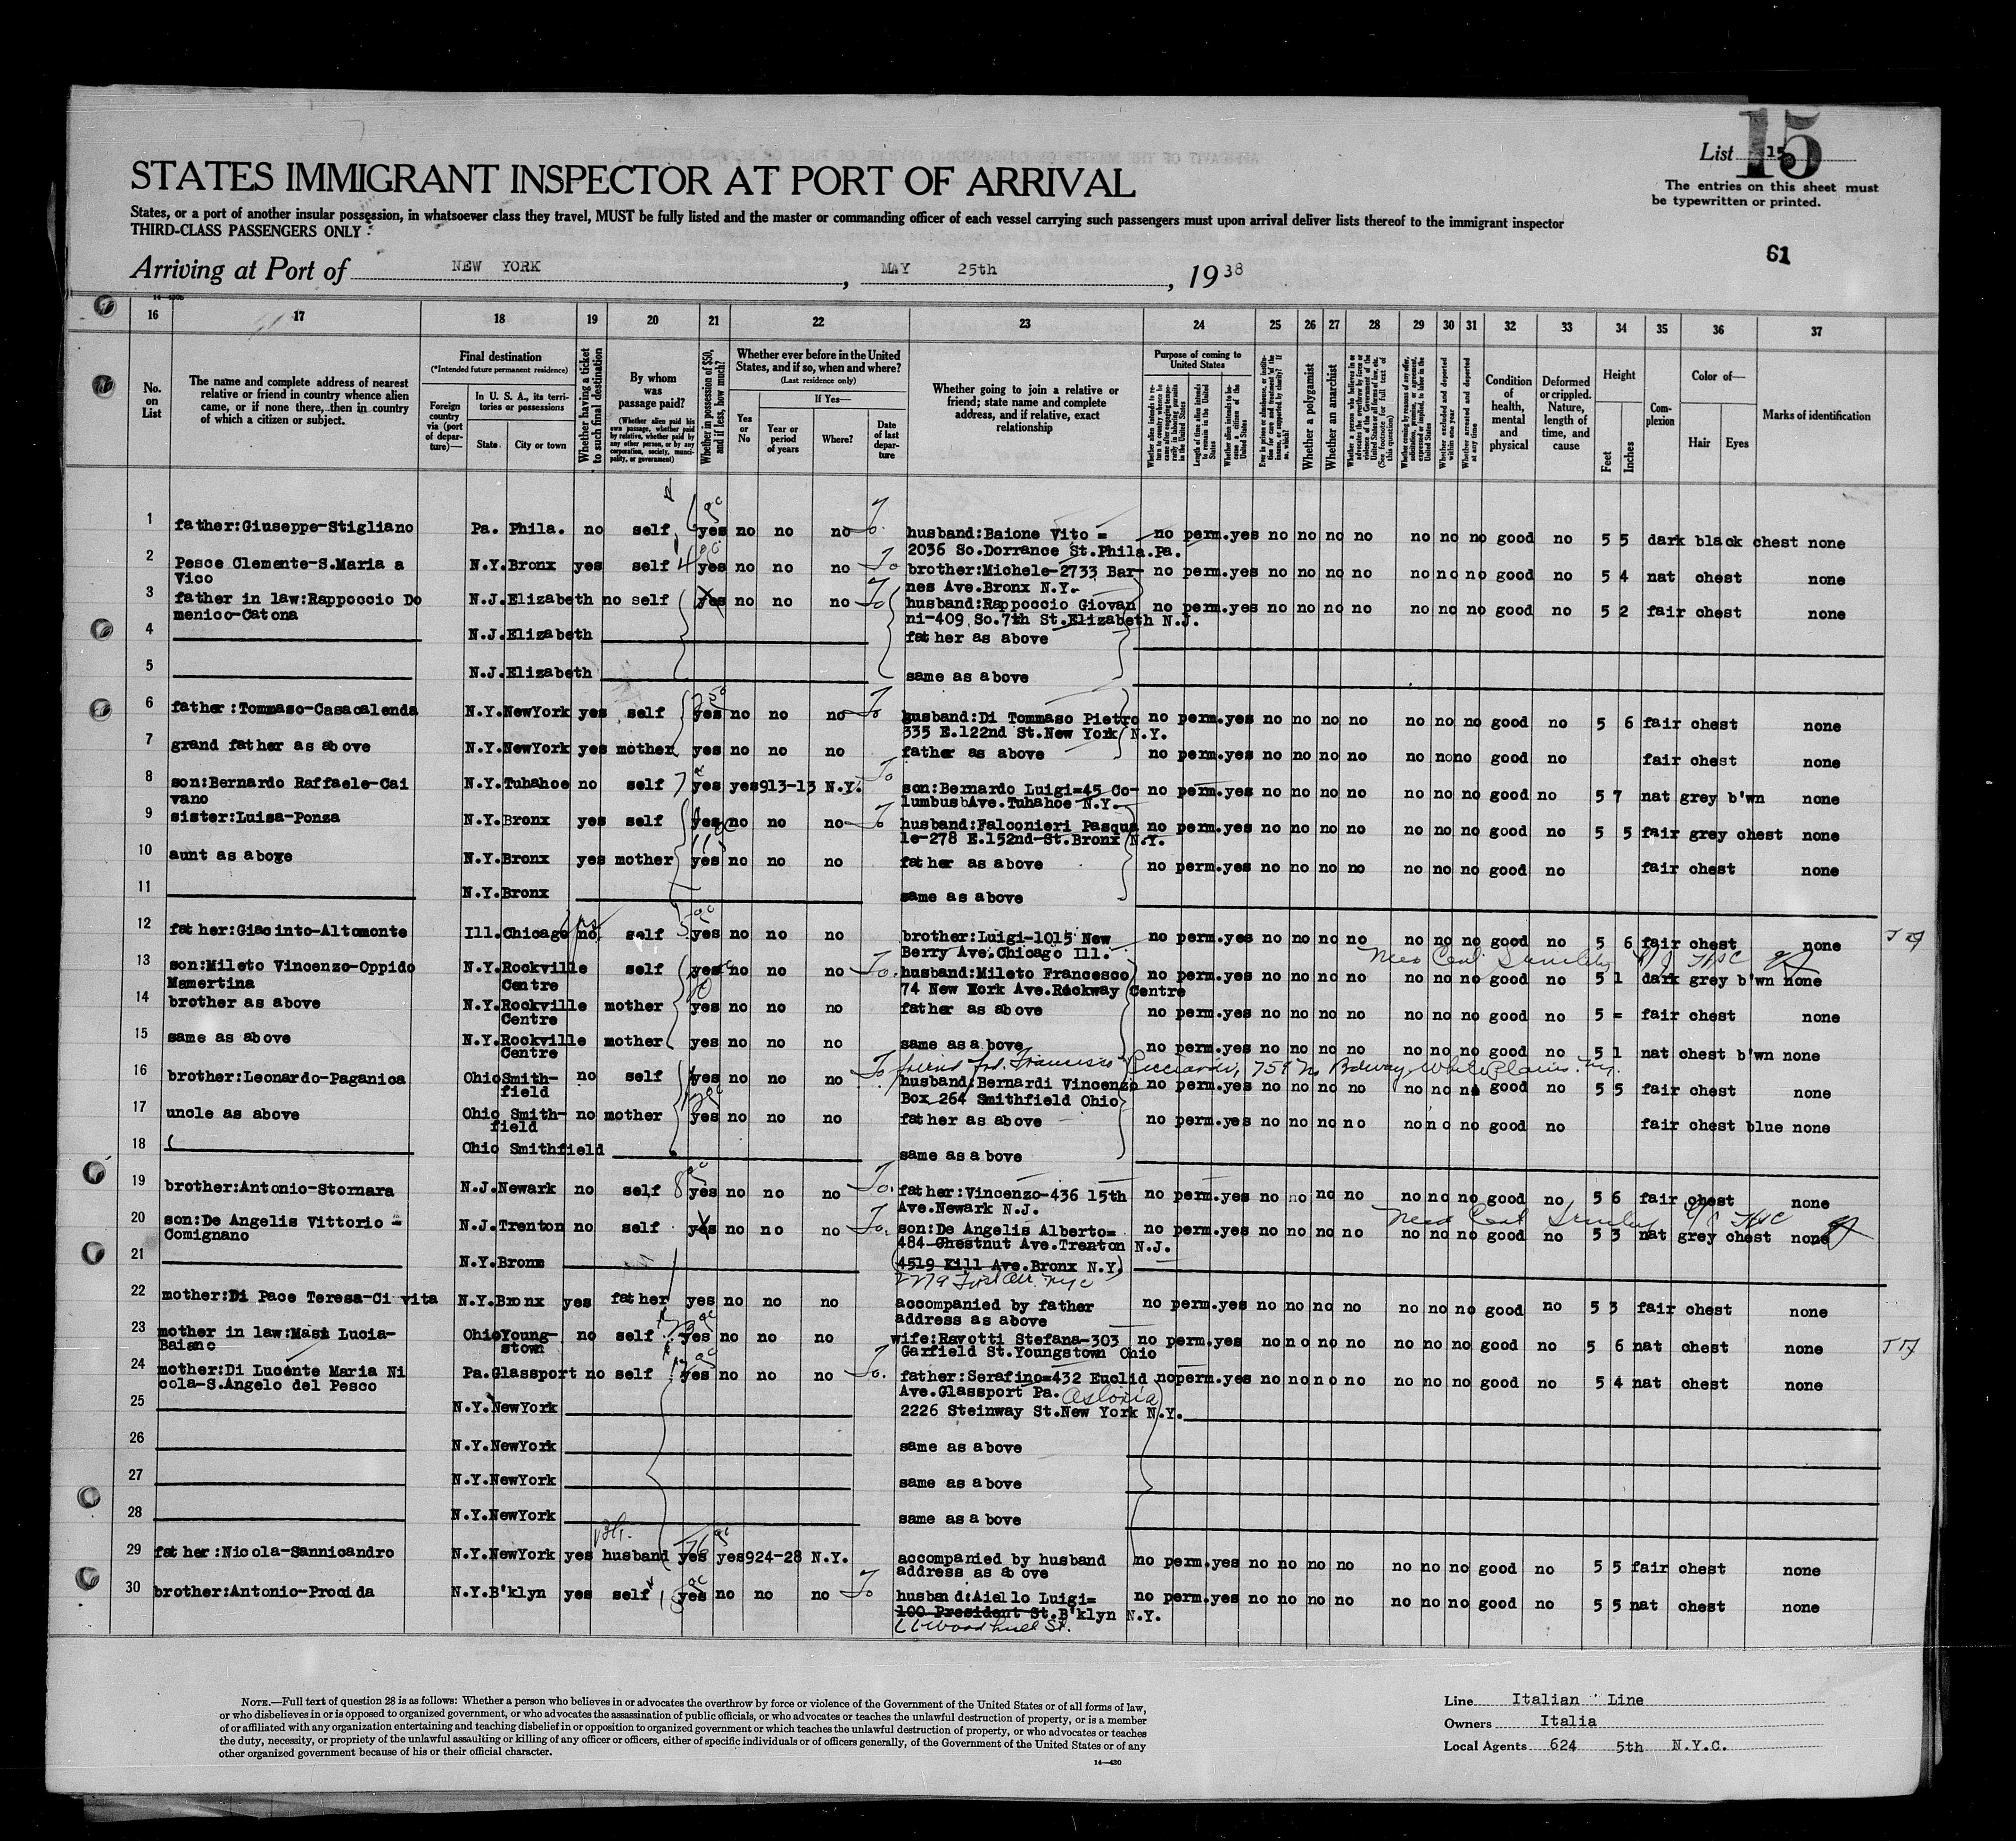 15
List 15
The entries on this sheet must
be typewritten or printed.
61
STATES IMMIGRANT INSPECTOR AT PORT OF ARRIVAL
States, or a port of another insular possession, in whatsoever class they travel, MUST be fully listed and the master or commanding officer of each vessel carrying such passengers must upon arrival deliver lists thereof to the immigrant inspector
THIRD-CLASS PASSENGERS ONLY
Arriving at Port of NEW YORK, MAY 25th, 1938
16 17 18 19 20 21 22 23 24 25 26 27 28 29 30 31 32 33 34 35 36 37
No. on List
The name and complete address of nearest
relative or friend in country whence alien
came, or if none there, then in country
of which a citizen or subject.
Final destination
(*Intended future permanent residence)
Foreign country via (port of departure)—
In U. S. A., its territories or possessions
State City or town
Whether having a ticket to such final destination
By whom was passage paid?
(Whether alien paid his own passage, whether paid by relative, whether paid by any other person, or by any corporation, society, municipality, or government)
Whether in possession of $50, and if less, how much?
Whether ever before in the United States, and if so, when and where?
(Last residence only)
Yes or No
If Yes—
Year or period of years
Where?
Date of last departure
Whether going to join a relative or
friend; state name and complete
address, and if relative, exact
relationship
Purpose of coming to United States
Whether a polygamist
Whether an anarchist
Whether excluded and deported within one year
Whether arrested and deported at any time
Condition of health, mental and physical
Deformed or crippled. Nature, length of time, and cause
Height
Feet Inches
Complexion
Color of—
Hair Eyes
Marks of identification
1 father:Giuseppe-Stigliano Pa. Phila. no self yes no no no To husband:Baione Vito = no perm.yes no no no no no no no good no 5 5 dark black chest none
2036 So.Dorrance St.Phila.Pa.
2 Pesce Clemente-S.Maria a N.Y.Bronx yes self 4 yes no no no To brother:Michele-2733 Bar- no perm.yes no no no no no no no good no 5 4 nat chest none
Vico nes Ave.Bronx N.Y.
3 father in law:Rappoccio Do N.J.Elizabeth no self yes no no no To husband:Rappoccio Giovan no perm.yes no no no no no no no good no 5 2 fair chest none
menico-Catona ni-409 So.7th St.Elizabeth N.J.
4 N.J.Elizabeth father as above
5 N.J.Elizabeth same as above
6 father:Tommaso-Casacalenda N.Y.NewYork yes self yes no no no To husband:Di Tommaso Pietro no perm.yes no no no no no no no good no 5 6 fair chest none
335 E.122nd St.New York N.Y.
7 grand father as above N.Y.NewYork yes mother yes no no no father as above no perm.yes no no no no no no no good no fair chest none
8 son:Bernardo Raffaele-Cai N.Y.Tuhahoe no self 7 yes yes913-13 N.Y. To son:Bernardo Luigi=45 Co- no perm.yes no no no no no no no good no 5 7 nat grey b'wn none
vano lumbusbAve.Tuhahoe N.Y.
9 sister:Luisa-Ponza N.Y.Bronx yes self yes no no no To husband:Falconieri Pasqua no perm.yes no no no no no no no good no 5 5 fair grey chest none
le-278 E.152nd-St.Bronx N.Y.
10 aunt as above N.Y.Bronx yes mother yes no no no father as above no perm.yes no no no no no no no good no fair chest none
11 N.Y.Bronx same as above
12 father:Giacinto-Altomonte Ill.Chicago no self yes no no no brother:Luigi-1015 New no perm.yes no no no no no no no good no 5 6 fair chest none
Berry Ave.Chicago Ill.
13 son:Mileto Vincenzo-Oppido N.Y.Rockville self yes no no no To. husband:Mileto Francesco no perm.yes no no no no no no no good no 5 1 dark grey b'wn none
Mamertina Centre 74 New York Ave.Rockway Centre
14 brother as above N.Y.Rockville mother yes no no no father as above no perm.yes no no no no no no no good no 5 = fair chest none
Centre
15 same as above N.Y.Rockville mother yes no no no same as above no perm.yes no no no no no no no good no 5 1 nat chest b'wn none
Centre
16 brother:Leonardo-Paganica OhioSmith- no self yes no no no To husband:Bernardi Vincenzo no perm.yes no no no no no no no good no 5 5 fair chest none
field Box 264 Smithfield Ohio
17 uncle as above Ohio Smith- no mother yes no no no father as above no perm.yes no no no no no no no good no fair chest blue none
field
18 Ohio Smithfield same as above
19 brother:Antonio-Stornara N.J.Newark no self 8 yes no no no To. father:Vincenzo-436 15th no perm.yes no no no no no no no good no 5 6 fair chest none
Ave.Newark N.J.
20 son:De Angelis Vittorio = N.J.Trenton no self yes no no no To. son:De Angelis Alberto= no perm.yes no no no no no no no good no 5 3 nat grey chest none
Comignano 484 Chestnut Ave.Trenton N.J.
21 N.Y.Bronx 4519 Kill Ave.Bronx N.Y.
22 mother:Di Pace Teresa-Civita N.Y.Bronx yes father yes no no no accompanied by father no perm.yes no no no no no no no good no 5 3 fair chest none
address as above
23 mother in law:Masi Lucia- OhioYoung- no self yes no no no wife:Ravotti Stefana-303 no perm.yes no no no no no no no good no 5 6 nat chest none
Baiano stown Garfield St.Youngstown Ohio
24 mother:Di Lucente Maria Ni Pa.Glassport no self yes no no no To. father:Serafino=432 Euclid no perm.yes no no no no no no no good no 5 4 nat chest none
cola-S.Angelo del Pesco Ave.Glassport Pa. Astoria
25 N.Y.NewYork 2226 Steinway St.New York N.Y.
26 N.Y.NewYork same as above
27 N.Y.NewYork same as above
28 N.Y.NewYork same as above
29 father:Nicola-Sannicandro N.Y.NewYork yes husband yes yes924-28 N.Y. accompanied by husband no perm.yes no no no no no no no good no 5 5 fair chest none
address as above
30 brother:Antonio-Procida N.Y.B'klyn yes self yes no no no To husband:Aiello Luigi= no perm.yes no no no no no no no good no 5 5 nat chest none
100 President St.B'klyn N.Y.
66 Woodhull St.
NOTE.—Full text of question 28 is as follows: Whether a person who believes in or advocates the overthrow by force or violence of the Government of the United States or of all forms of law,
or who disbelieves in or is opposed to organized government, or who advocates the assassination of public officials, or who advocates or teaches the unlawful destruction of property, or is a member
of or affiliated with any organization entertaining and teaching disbelief in or opposition to organized government or which teaches the unlawful destruction of property, or who advocates or teaches
the duty, necessity, or propriety of the unlawful assaulting or killing of any officer or officers, either of specific individuals or of officers generally, of the Government of the United States or of any
other organized government because of his or their official character.
14—430
Line Italian Line
Owners Italia
Local Agents 624 5th N.Y.C.